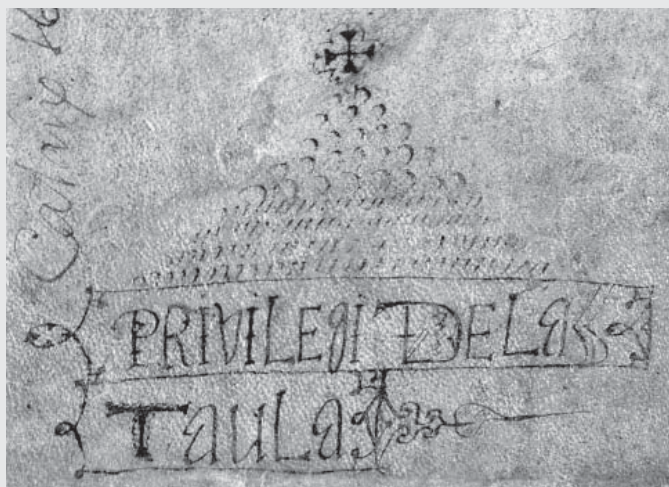 PRIVILEGI DE LA
TAULA